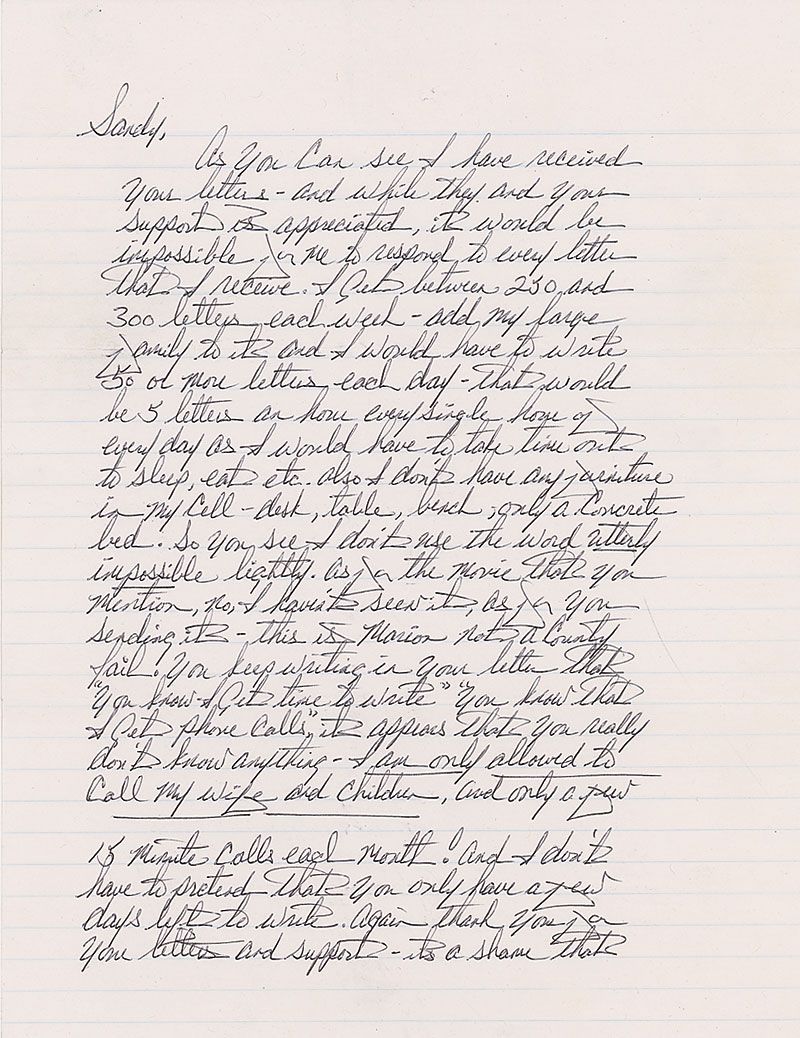 Sandy,
As You Can see I have received
Your letters - and while they and Your
support is appreciated, it would be
impossible for me to respond to every letter
that I receive. I Get between 250 and
300 letters each week - add my large
family to it and I would have to write
50 or more letters each day - that would
be 5 letters an hour every single hour of
every day as I would have to take time out
to sleep, eat etc. also I don't have any furniture
in my Cell - desk, table, bench, only a Concrete
bed. So You see I don't use the word utterly
impossible lightly. As for the movie that You
Mention, no, I haven't seen it, as for You
sending it - this is Marion not a County
fair. You keep writing in Your letter that
"You know I Get time to write" "You know that
I Get phone Calls", it appears that You really
don't know anything - I am only allowed to
Call My wife and Children, and only a few
15 Minute Calls each Month! And I don't
have to pretend that You only have a few
days left to write. Again thank You for
Your letters and support - its a shame that